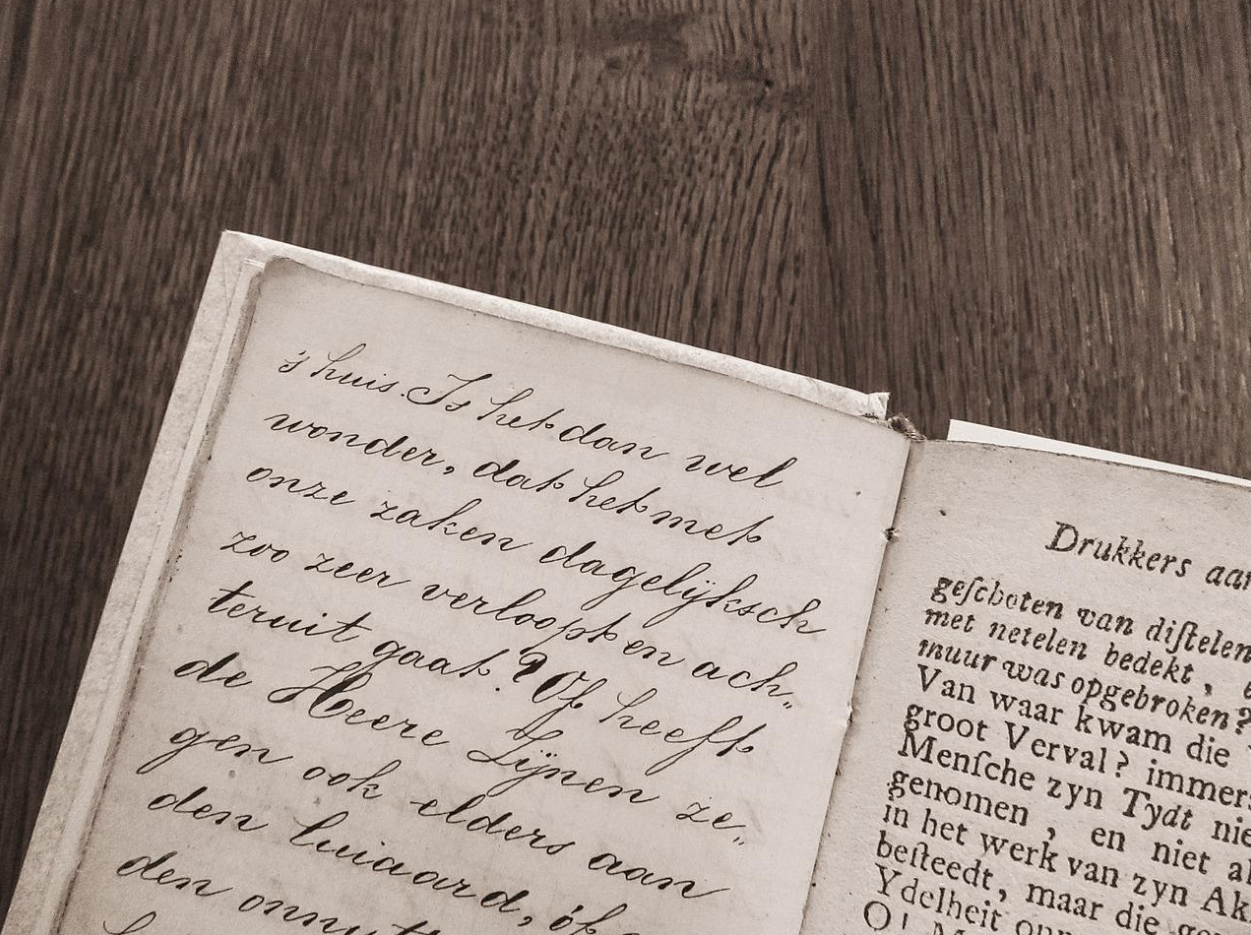 's huis. Is het dan wel
wonder, dat het met
onze zaken dagelijksch
zoo zeer verloopt en ach„
teruit gaat? Of heeft
de Heere Zijnen ze„
gen ook elders aan
den luiaard, óf
den onnutt
Drukkers aan
geſchoten van diſtelen
met netelen bedekt,
muur was opgebroken?
Van waar kwam die
groot Verval? immers
Menſche zyn Tydt nie
genomen, en niet al
in het werk van zyn Ak
beſteedt, maar die
Ydelheit
O!